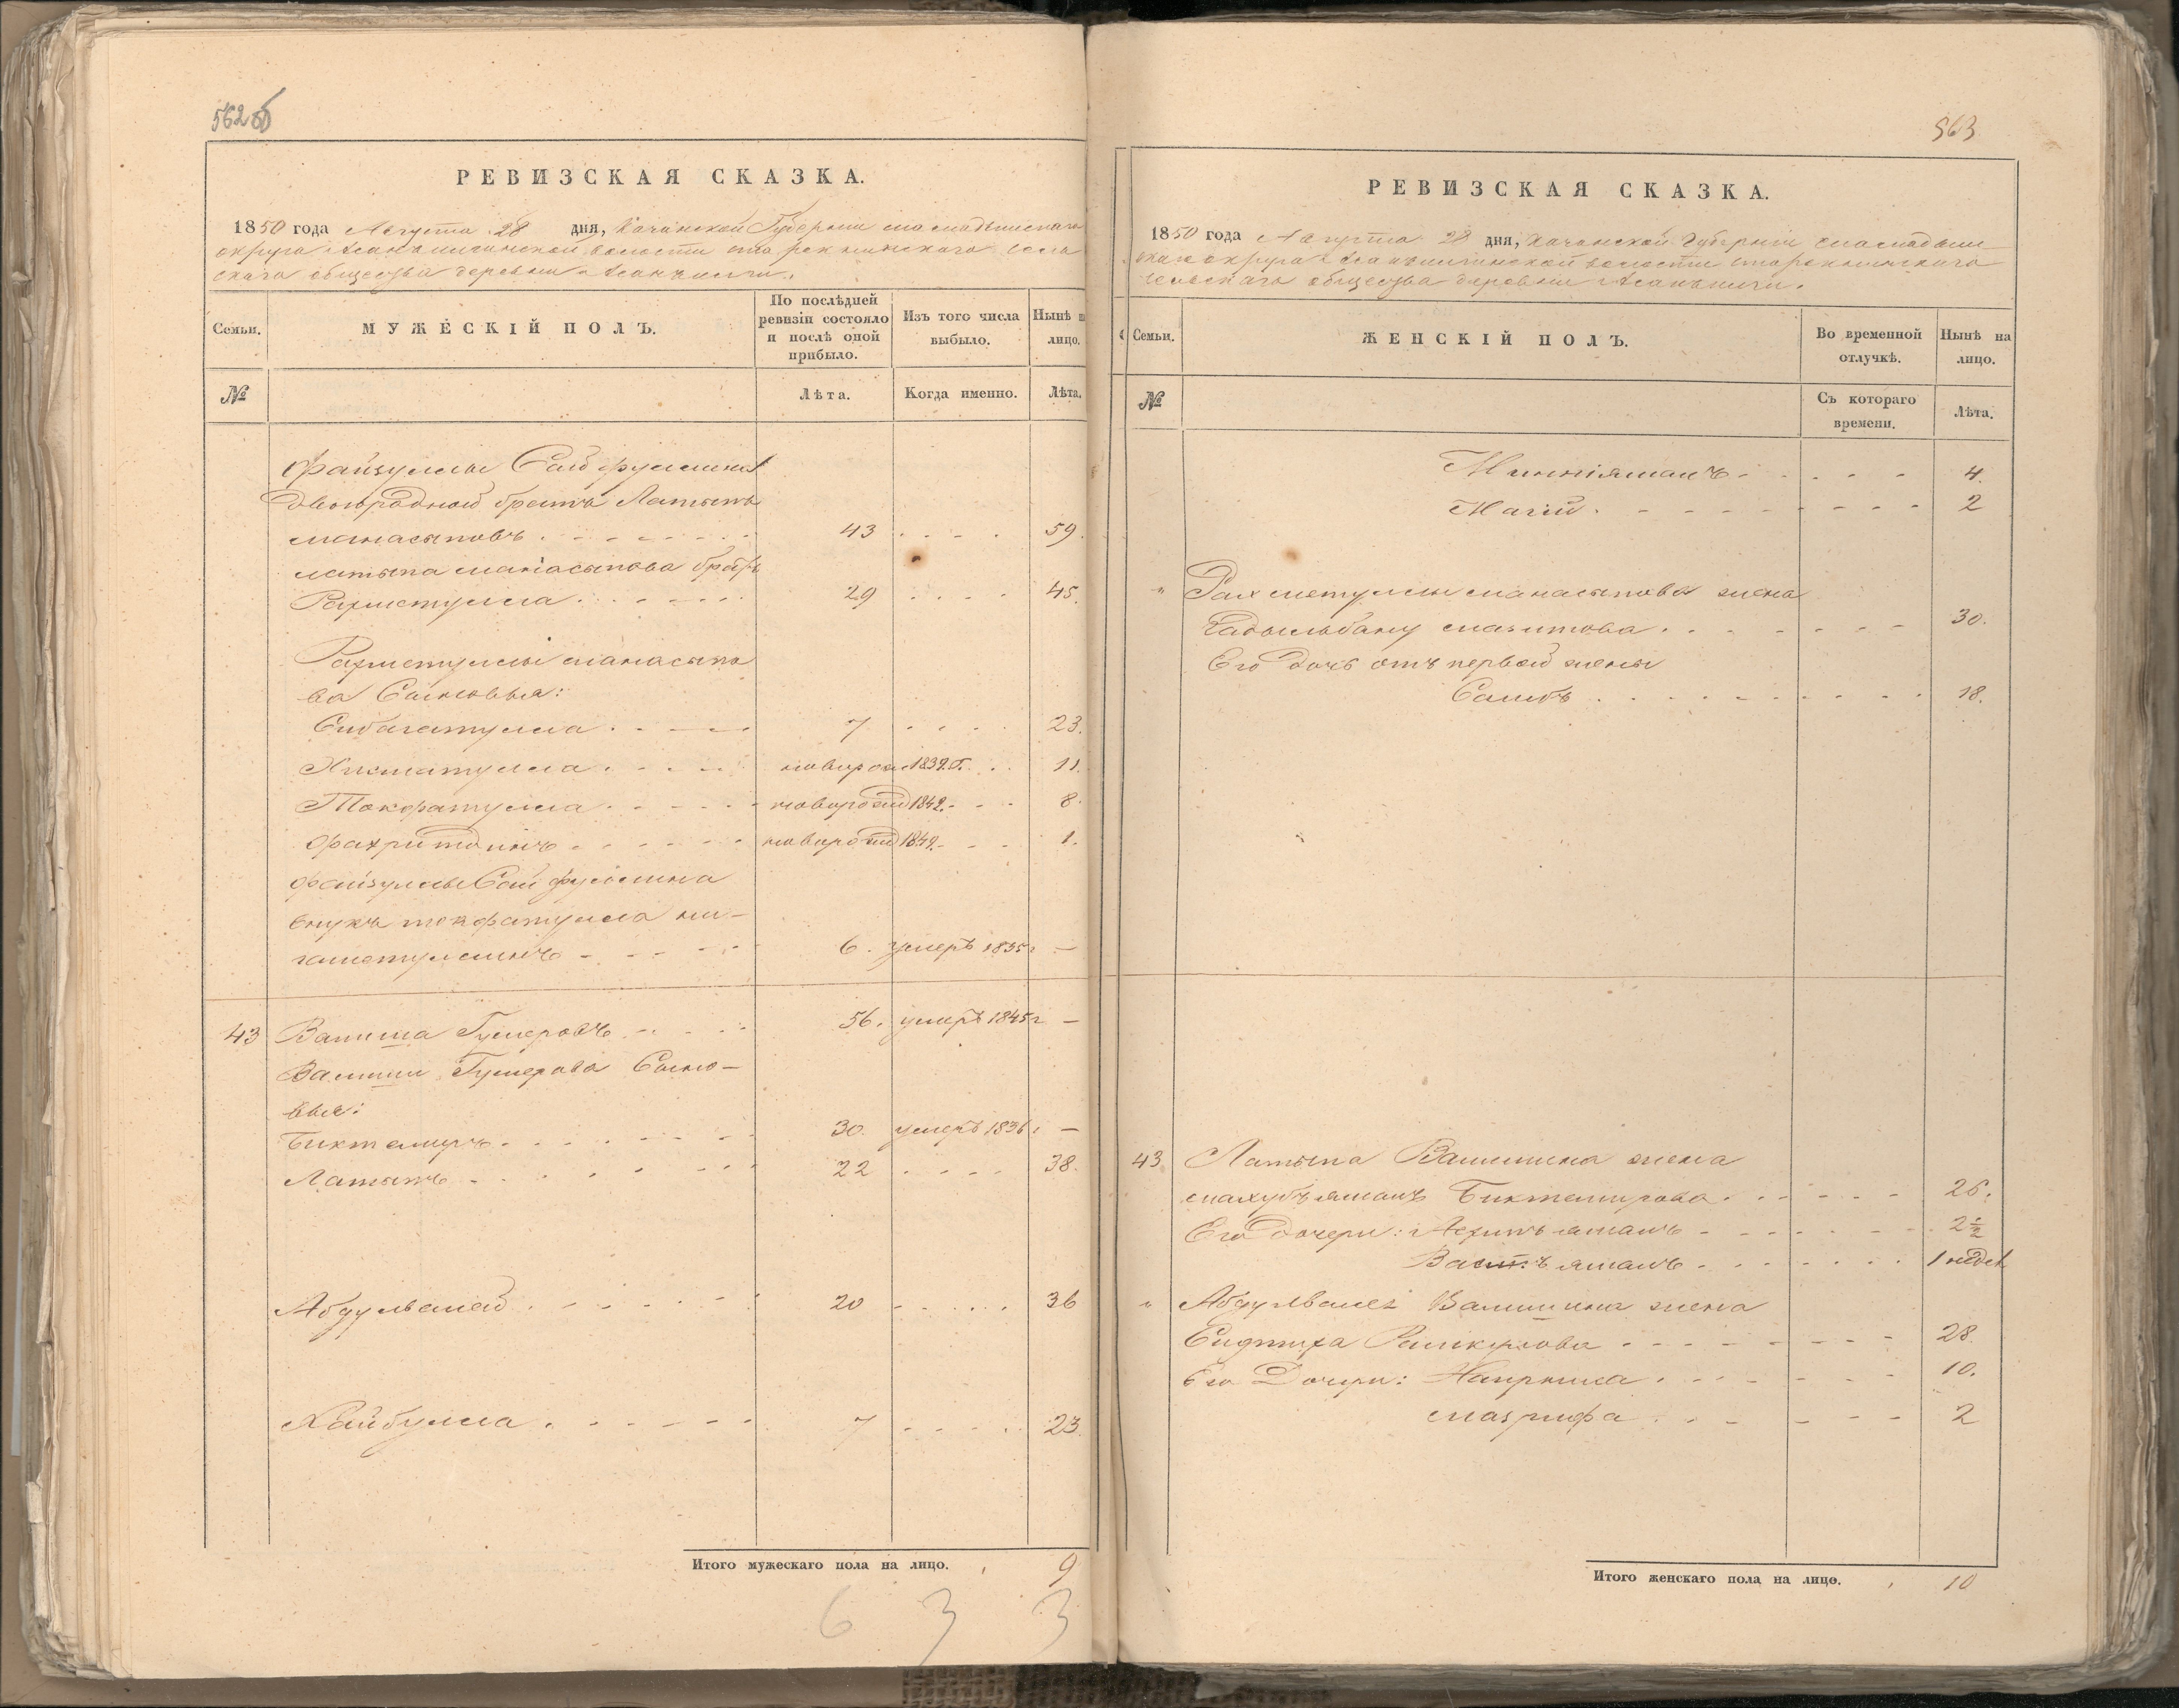 562об
РЕВИЗСКАЯ СКАЗКА.
1850 года Августа 28 дня, Казанской Губернии мамадышскаго
округа Асанъ волости ста сель
скаго общества деревни Асанъ
Семьи.
МУЖЕСКІЙ ПОЛЪ.
По послѣдней ревизіи состояло и послѣ оной прибыло.
Изъ того числа выбыло.
Нынѣ на лицо.
№
Лѣта.
Когда именно.
Лѣта.
Файзуллы Сайфуллина
двоюродной братъ Латыпъ
манасыповъ 43 59.
латыпа манасыпова братъ
Рахметулла 29 45.
Рахметуллы манасыпо
ва Сыновья:
Сибагатулла 7 23.
Хикматулла новорож 1839.г. 11.
новорожд 1842. 8.
Фахритдинъ новорожд 1849. 1.
Файзуллы Сайфуллина
внукъ ни-
гаметуллинъ 6. умеръ 1835г —
43 Валиша Гумеровъ 56. умеръ 1845г —
Валиши Гумерова Сыно-
вья:
Биктемиръ 30. умеръ 1836г —
Латыпъ 22 38.
Абдулвалей 20 36
Хайбулла 7 23.
Итого мужескаго пола на лицо. 9
6 3 3
563
РЕВИЗСКАЯ СКАЗКА.
1850 года Августа 28 дня, Казанской Губерніи мамадыш
скаго округа волости
сельскаго общества деревни
Семьи.
ЖЕНСКІЙ ПОЛЪ.
Во временной отлучкѣ.
Нынѣ на лицо.
№
Съ котораго времени.
Лѣта.
4.
2
" Рахметуллы манасыпова жена
мазитова 30.
Его дочь отъ первой жены
18.
43 Латыпа Валишина жена
Биктемирова 26.
Его дочери: 2½
1 недел
" Абдулвалея Валишина жена
28.
Его Дочери: 10.
магрифа 2
Итого женскаго пола на лицо. 10